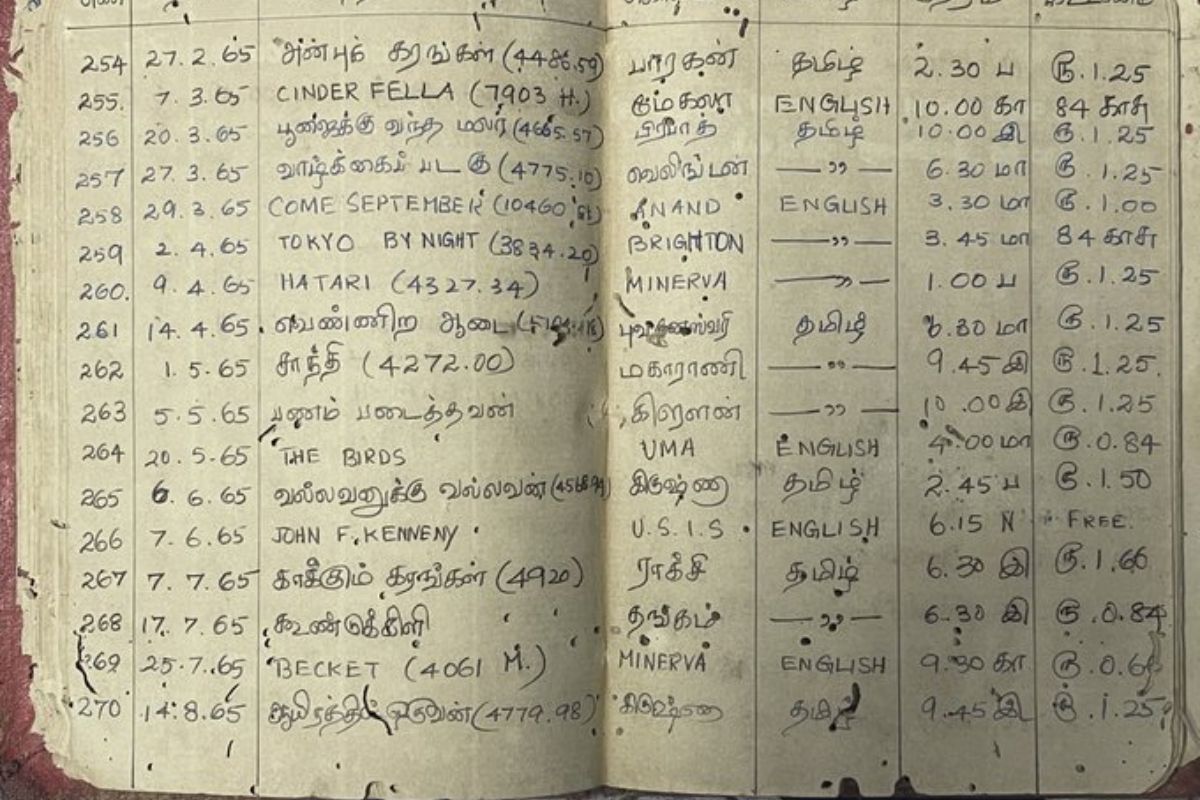 254 27.2.65 அன்புக் கரங்கள் (4486.59) பாரகன் தமிழ் 2.30 ப ரூ.1.25
255. 7.3.65 CINDER FELLA (7903 H.) ENGLISH 10.00 கா 84 காசு
256 20.3.65 பூஜைக்கு வந்த மலர் (4665.57) பிரபாத் தமிழ் 10.00 இ ரூ.1.25
257 27.3.65 வாழ்க்கைப் படகு (4775.10) வெலிங்டன் —„— 6.30 மா ரூ.1.25
258 29.3.65 COME SEPTEMBER (10460 ANAND ENGLISH 3.30 மா ரூ.1.00
259 2.4.65 TOKYO BY NIGHT (3834.20) BRIGHTON —„— 3.45 மா 84 காசு
260. 9.4.65 HATARI (4327.34) MINERVA —„ 1.00 ப ரூ.1.25
261 14.4.65 வெண்ணிற ஆடை புவனேஸ்வரி தமிழ் 6.30 மா ரூ.1.25
262 1.5.65 சாந்தி (4272.00) மகாராணி —„— 9.45 இ ரூ.1.25.
263 5.5.65 பணம் படைத்தவன் கிரௌன் —„— 10.00 இ ரூ.1.25
264 20.5.65 THE BIRDS UMA ENGLISH 4.00 மா ரூ.0.84
265 6.6.65 வல்லவனுக்கு வல்லவன் கிருஷ்ணா தமிழ் 2.45 ப ரூ.1.50
266 7.6.65 JOHN F. KENNENY U.S.I.S ENGLISH 6.15 N FREE.
267 7.7.65 காக்கும் கரங்கள் (4920) ராக்சி தமிழ் 6.30 இ ரூ.1.66
268 17.7.65 கூண்டுக்கிளி தங்கம் —„— 6.30 இ ரூ.0.84
269 25.7.65 BECKET (4061 M.) MINERVA ENGLISH 9.30 கா
270 14.8.65 ஆயிரத்தில் ஒருவன் (4779.98) கிருஷ்ணா தமிழ் 9.45 இ ரூ.1.25